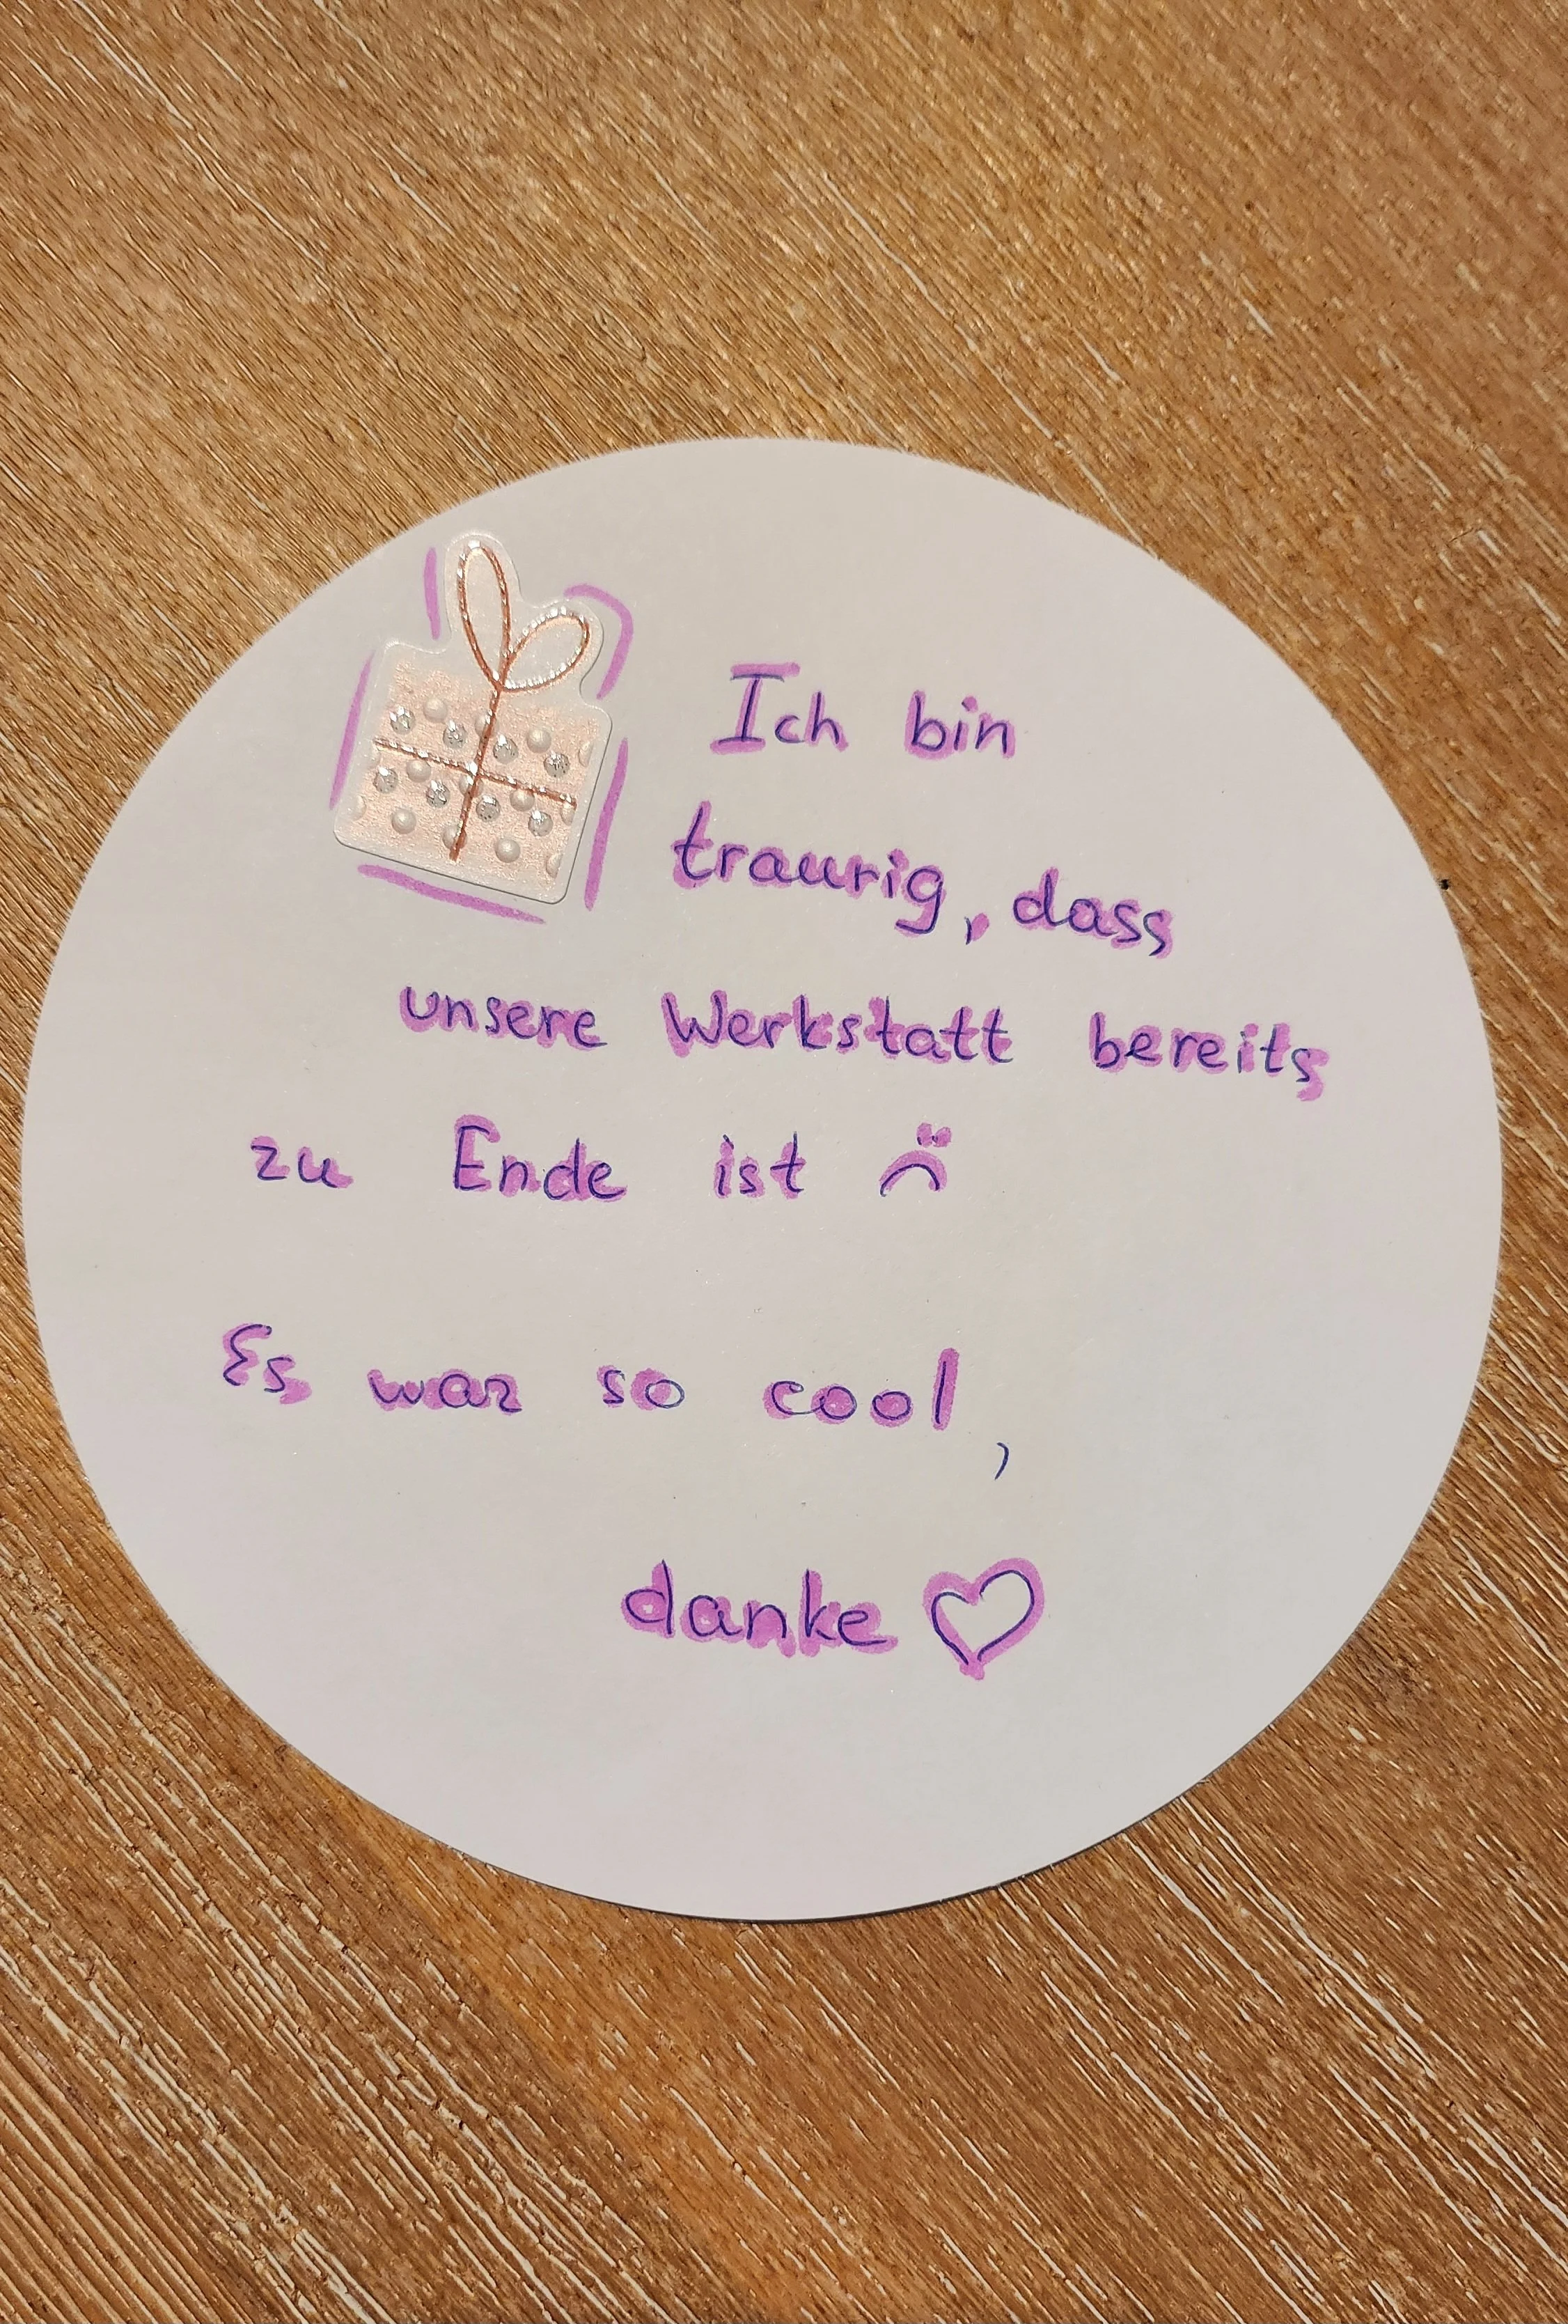 Ich bin
traurig, dass
unsere Werkstatt bereits
zu Ende ist ☹
Es war so cool,
danke ♡